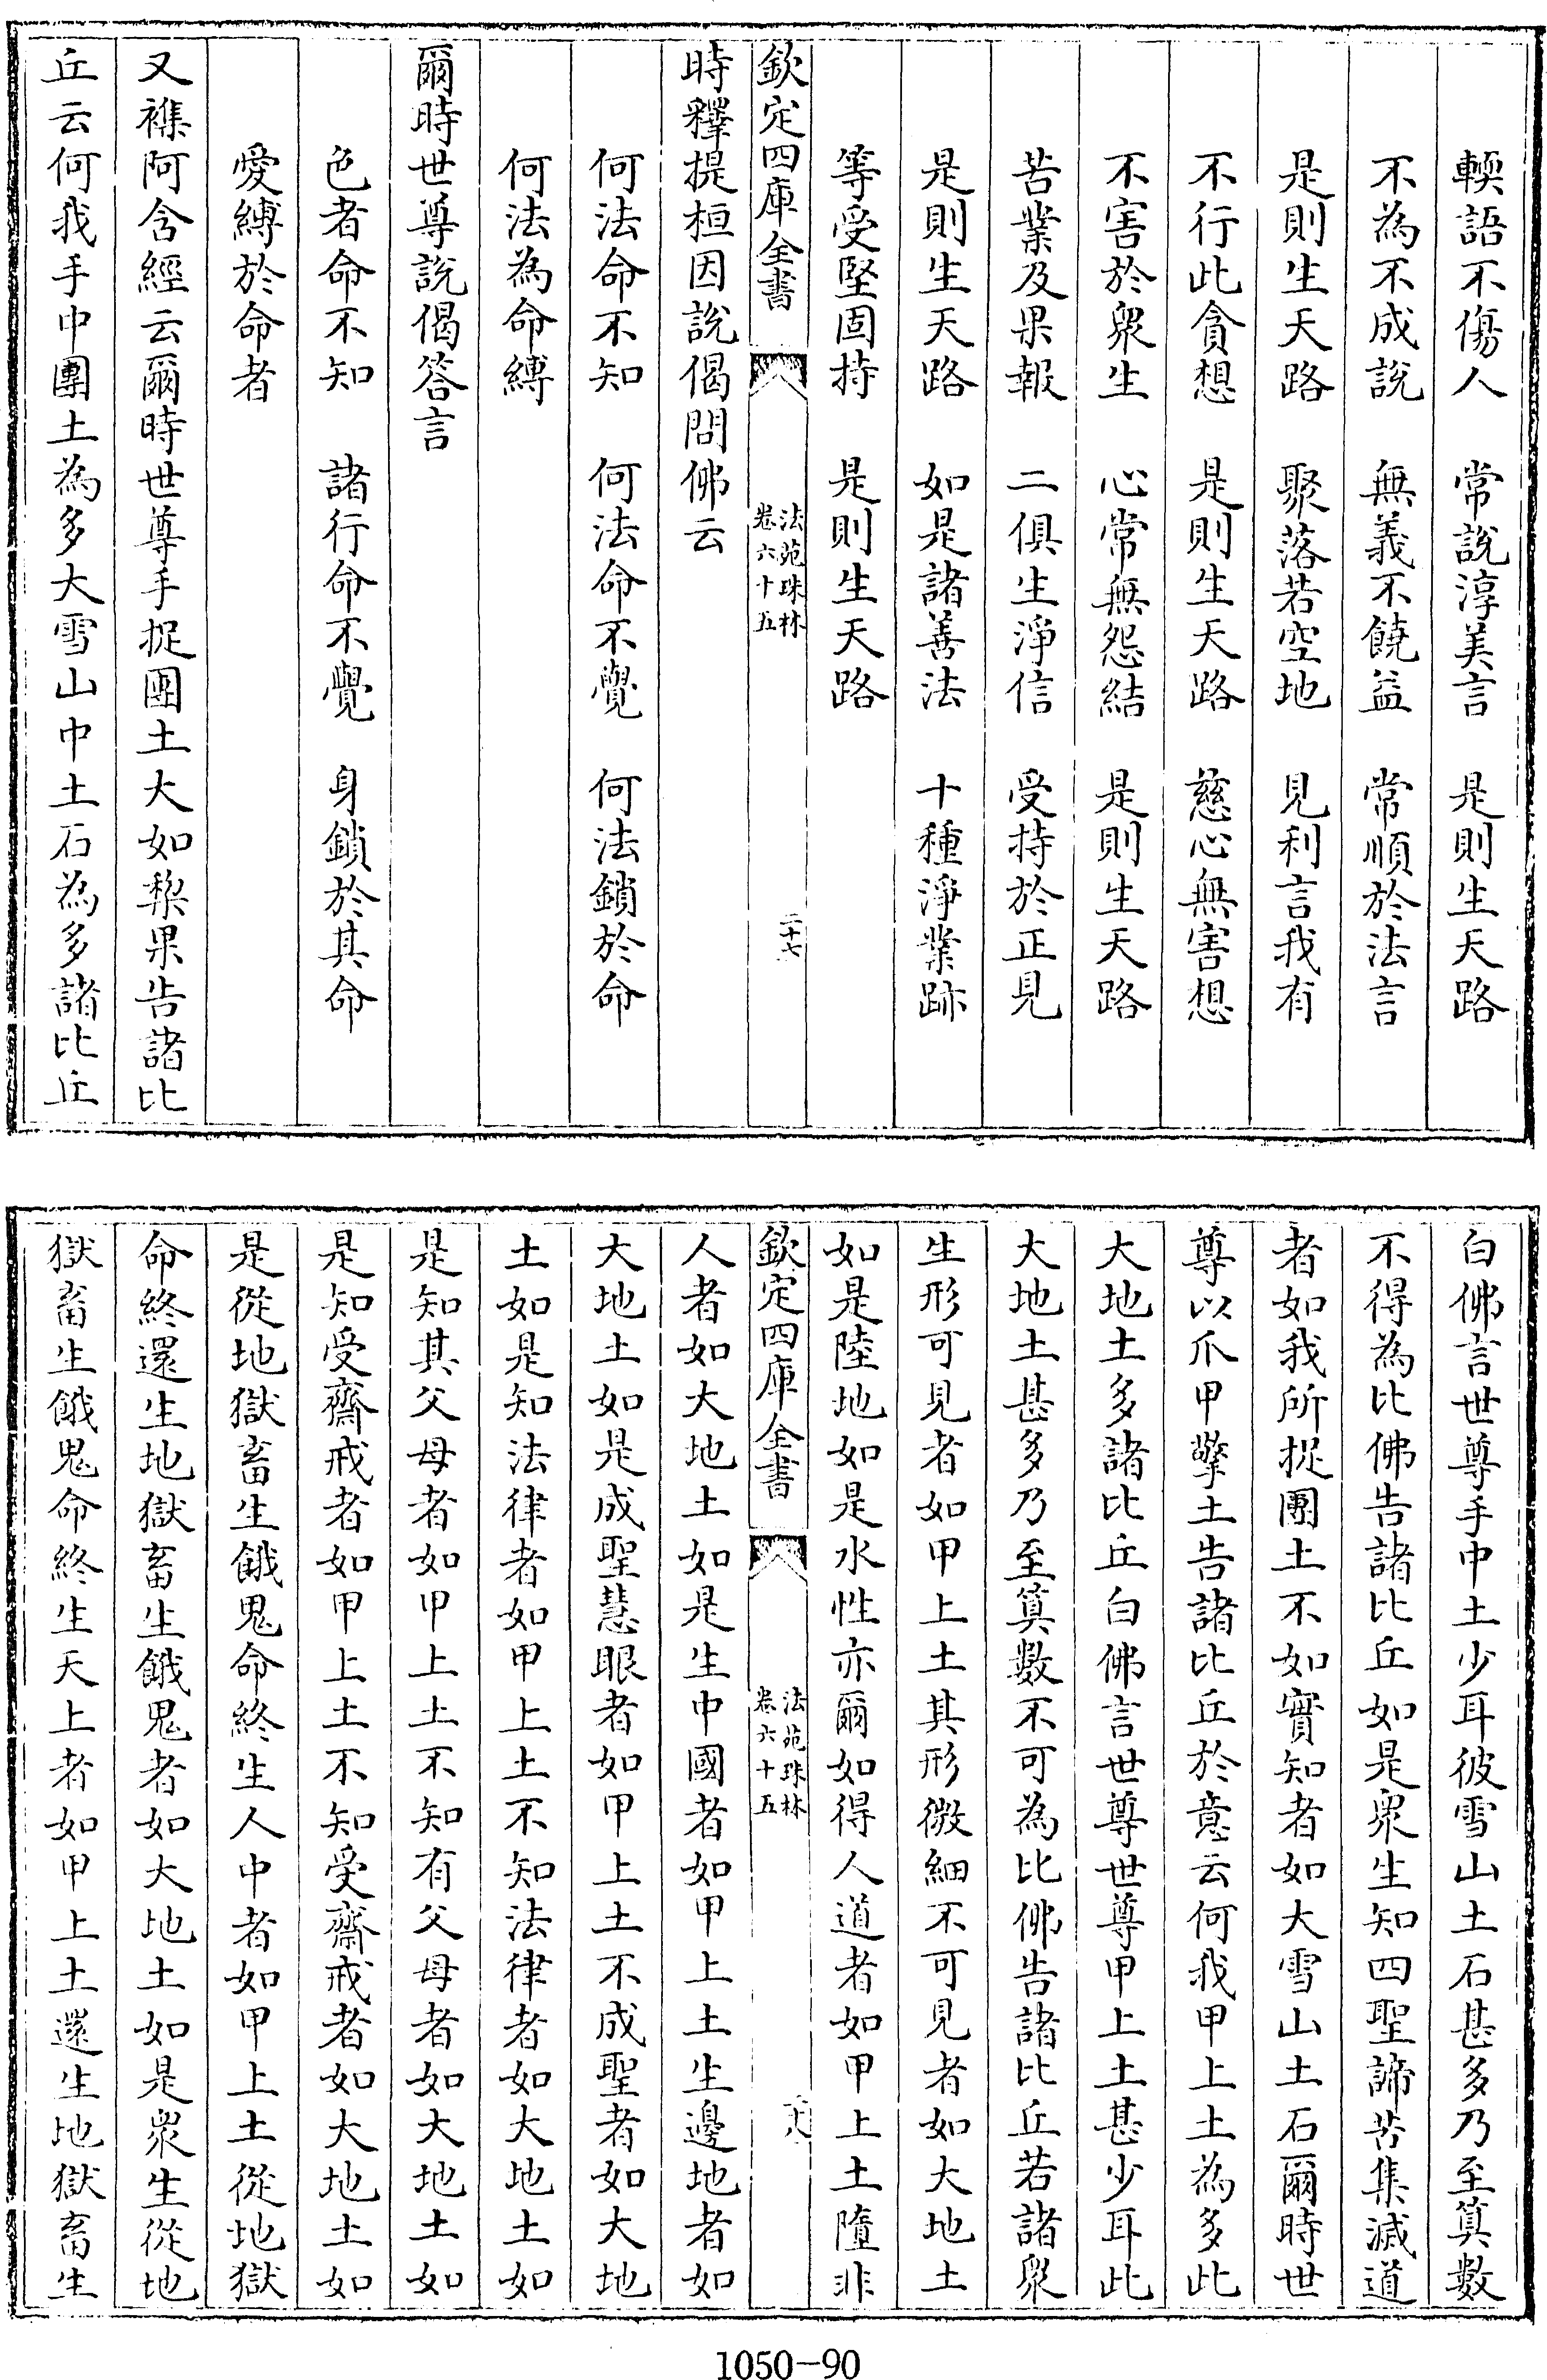 輭語不傷人　常說淳美言　是則生天路
不為不成說　無義不饒益　常順於法言
是則生天路　聚落若空地　見利言我有
不行此貪想　是則生天路　慈心無害想
不害於衆生　心常無怨結　是則生天路
苦業及果報　二俱生淨信　受持於正見
是則生天路　如是諸善法　十種淨業跡
等受堅固持　是則生天路
欽定四庫全書　法苑珠林卷六十五　二十七
時釋提桓因說偈問佛云
何法命不知　何法命不覺　何法鎖於命
何法為命縛
爾時世尊說偈答言
色者命不知　諸行命不覺　身鎖於其命
愛縛於命者
又襍阿含經云爾時世尊手捉團土大如棃果告諸比
丘云何我手中團土為多大雪山中土石為多諸比丘
白佛言世尊手中土少耳彼雪山土石甚多乃至算數
不得為比佛告諸比丘如是衆生知四聖諦苦集滅道
者如我所捉團土不如實知者如大雪山土石爾時世
尊以爪甲擎土告諸比丘於意云何我甲上土為多此
大地土多諸比丘白佛言世尊世尊甲上土甚少耳此
大地土甚多乃至算數不可為比佛告諸比丘若諸衆
生形可見者如甲上土其形微細不可見者如大地土
如是陸地如是水性亦爾如得人道者如甲上土隨非
欽定四庫全書　法苑珠林卷六十五　二十八
人者如大地土如是生中國者如甲上土生邊地者如
大地土如是成聖慧眼者如甲上土不成聖者如大地
土如是知法律者如甲上土不知法律者如大地土如
是知其父母者如甲上土不知有父母者如大地土如
是知受齋戒者如甲上土不知受齋戒者如大地土如
是從地獄畜生餓鬼命終生人中者如甲上土從地獄
命終還生地獄畜生餓鬼者如大地土如是衆生從地
獄畜生餓鬼命終生天上者如甲上土還生地獄畜生
1050-90